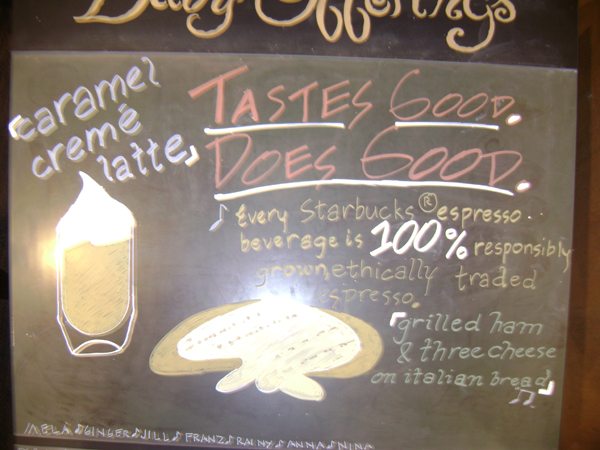 Daily Offerings
caramel
cremé
latte
TASTES GOOD.
DOES GOOD.
Every Starbucks® espresso
beverage is 100% responsibly
grown, ethically traded
espresso.
grilled ham
& three cheese
on italian bread
MELA GINGER JILL FRANZ RAINY ANNA NINA